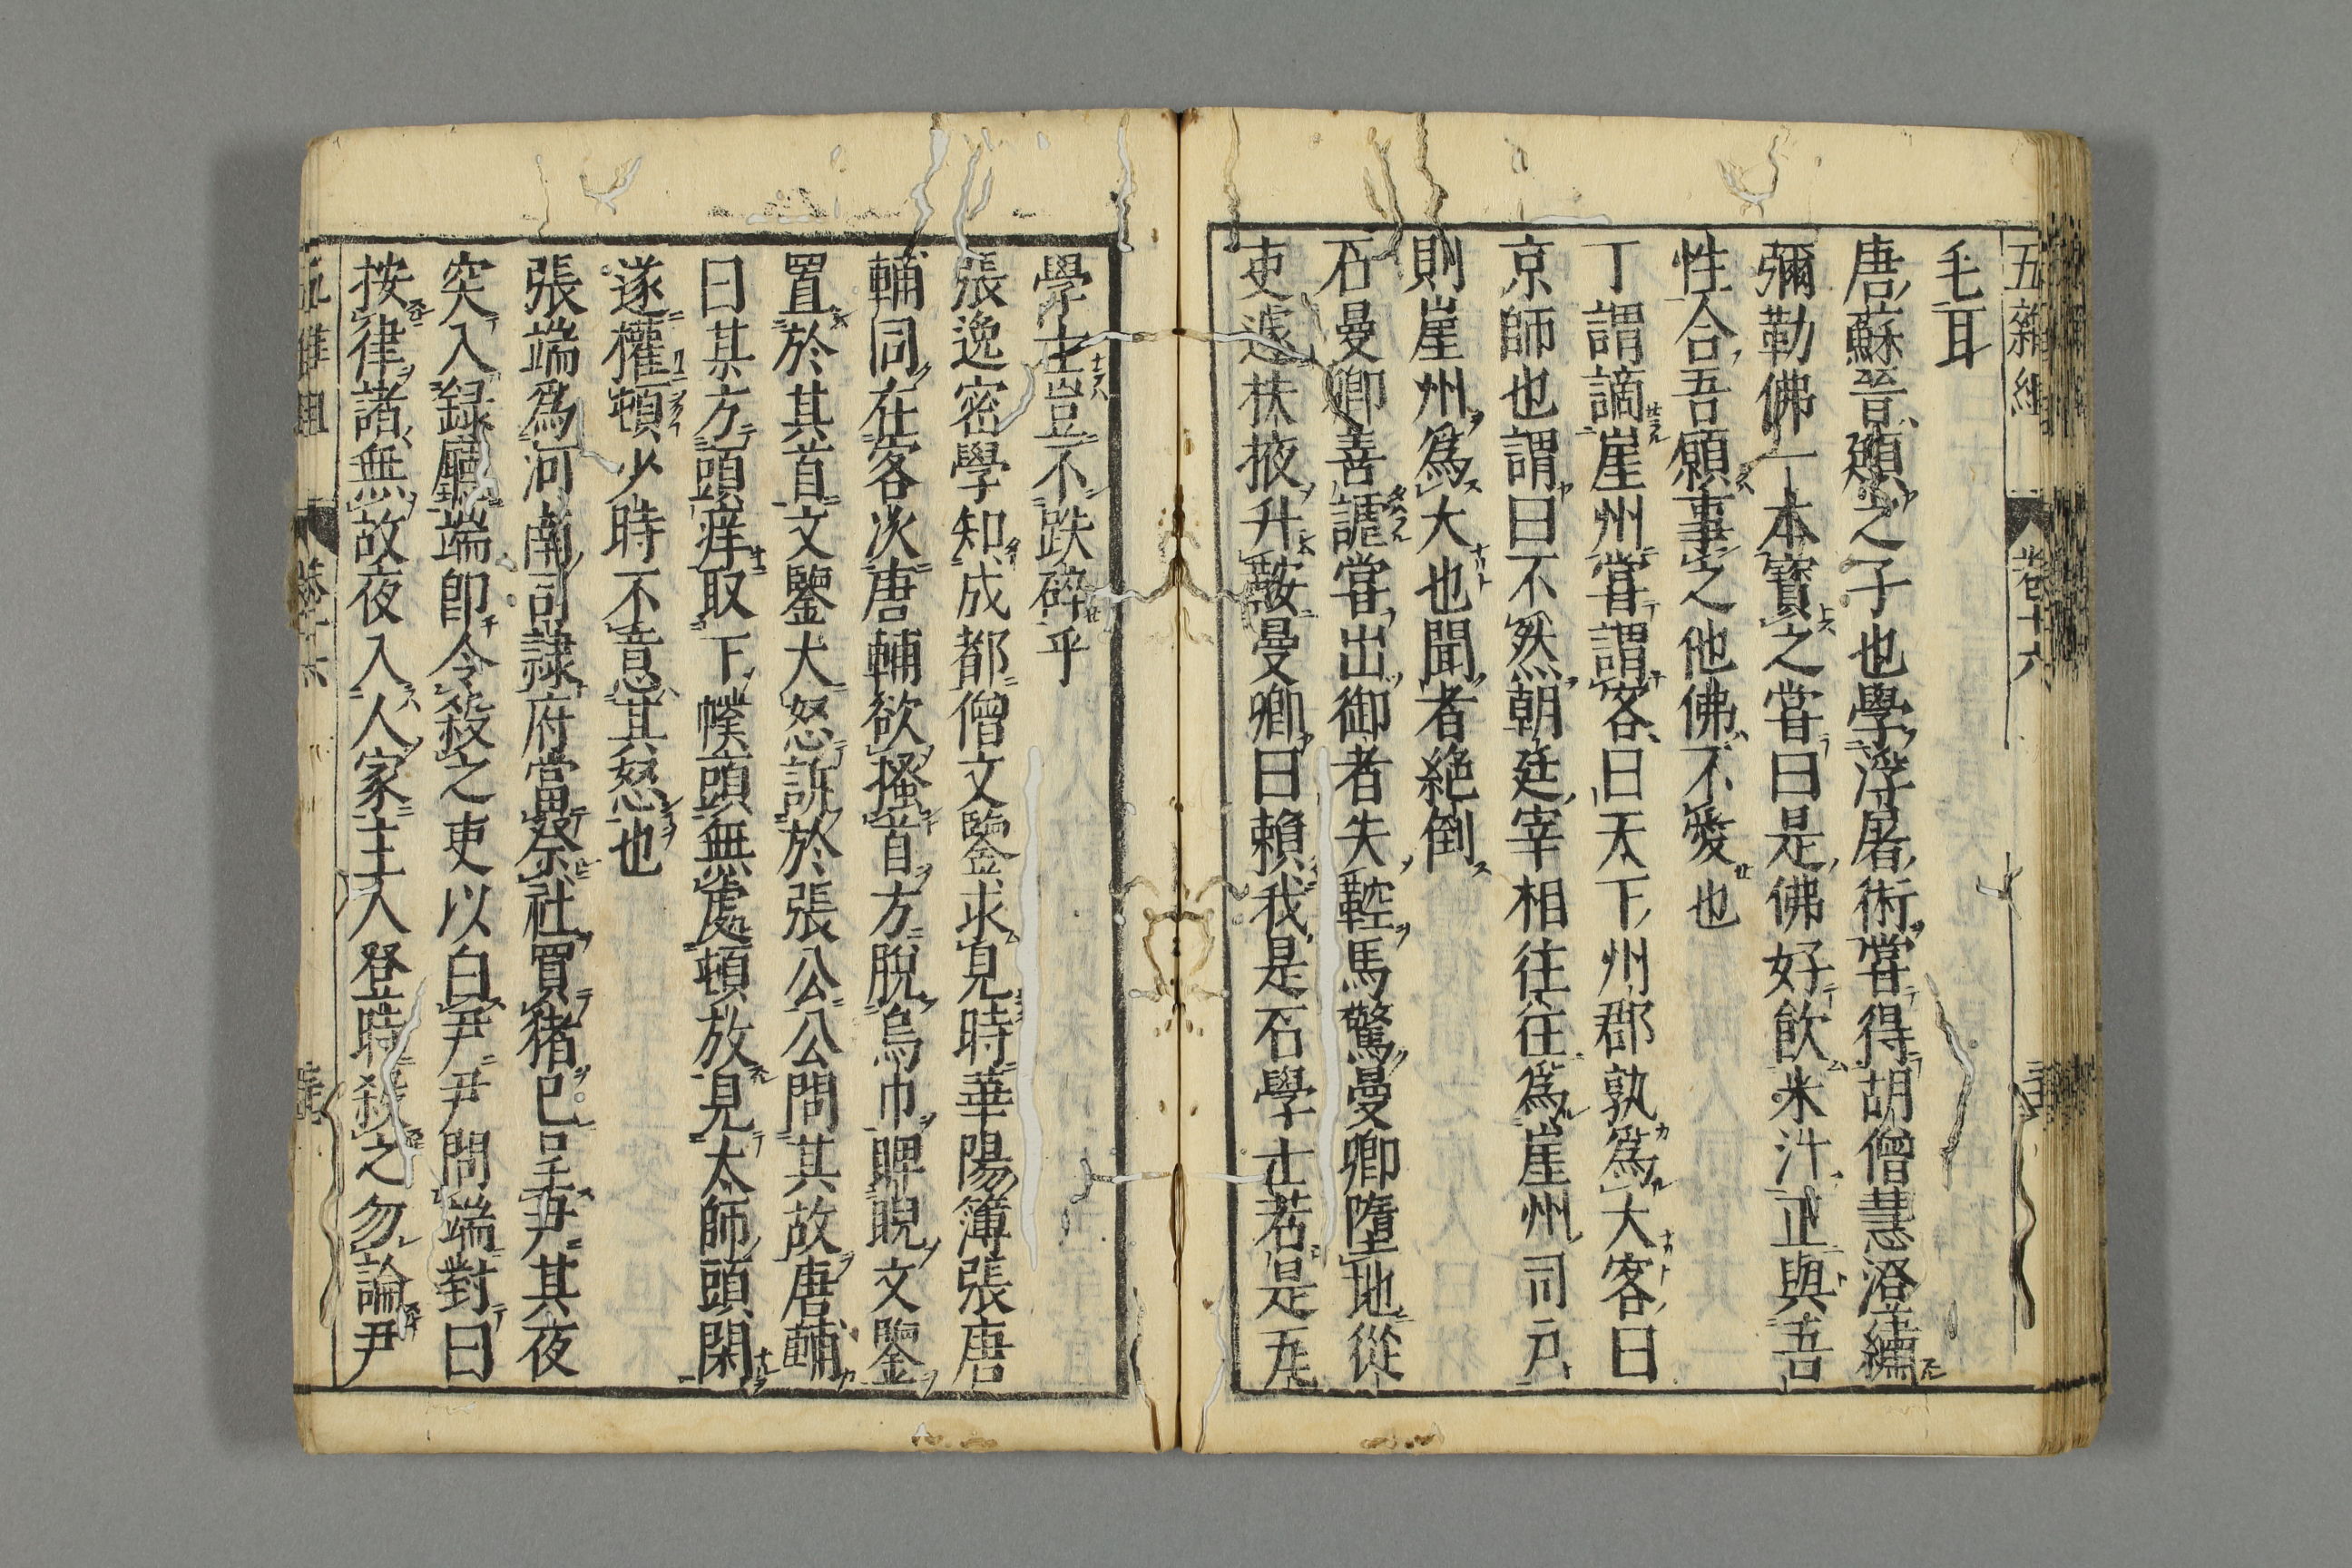 五雜組 卷十六
毛耳
唐蘇晉頲之子也學浮屠術嘗得胡僧慧澄繡
彌勒佛一本寳之嘗曰是佛好飲米汁正與吾
性合吾願事之他佛不愛也
丁謂謫崖州嘗謂客曰天下州郡孰爲大客曰
京師也謂曰不然朝廷宰相往往爲崖州司戸
則崖州爲大也聞者絶倒
石曼卿善謔嘗出御者失鞚馬驚曼卿墮地從
吏遽扶掖升鞍曼卿曰頼我是石學士若是瓦
學士豈不跌碎乎
張逸密學知成都僧文鑒求見時華陽簿張唐
輔同在客次唐輔欲搔首方脫烏巾睥睨文鑒
置於其首文鑒大怒訴於張公公問其故唐輔
曰某方頭痒取下幞頭無處頓放見太師頭閑
遂權頓少時不意其怒也
張端爲河南司隷府當祭社買猪已呈尹其夜
突入録廳端即令殺之吏以白尹尹問端對曰
按律諸無故夜入人家主人登時殺之勿論尹
五雜組 卷十六